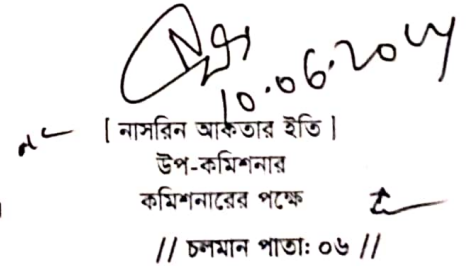 10.06.2024
| নাসরিন আকতার ইতি |
উপ-কমিশনার
কমিশনারের পক্ষে
// চলমান পাতা: ০৬ //